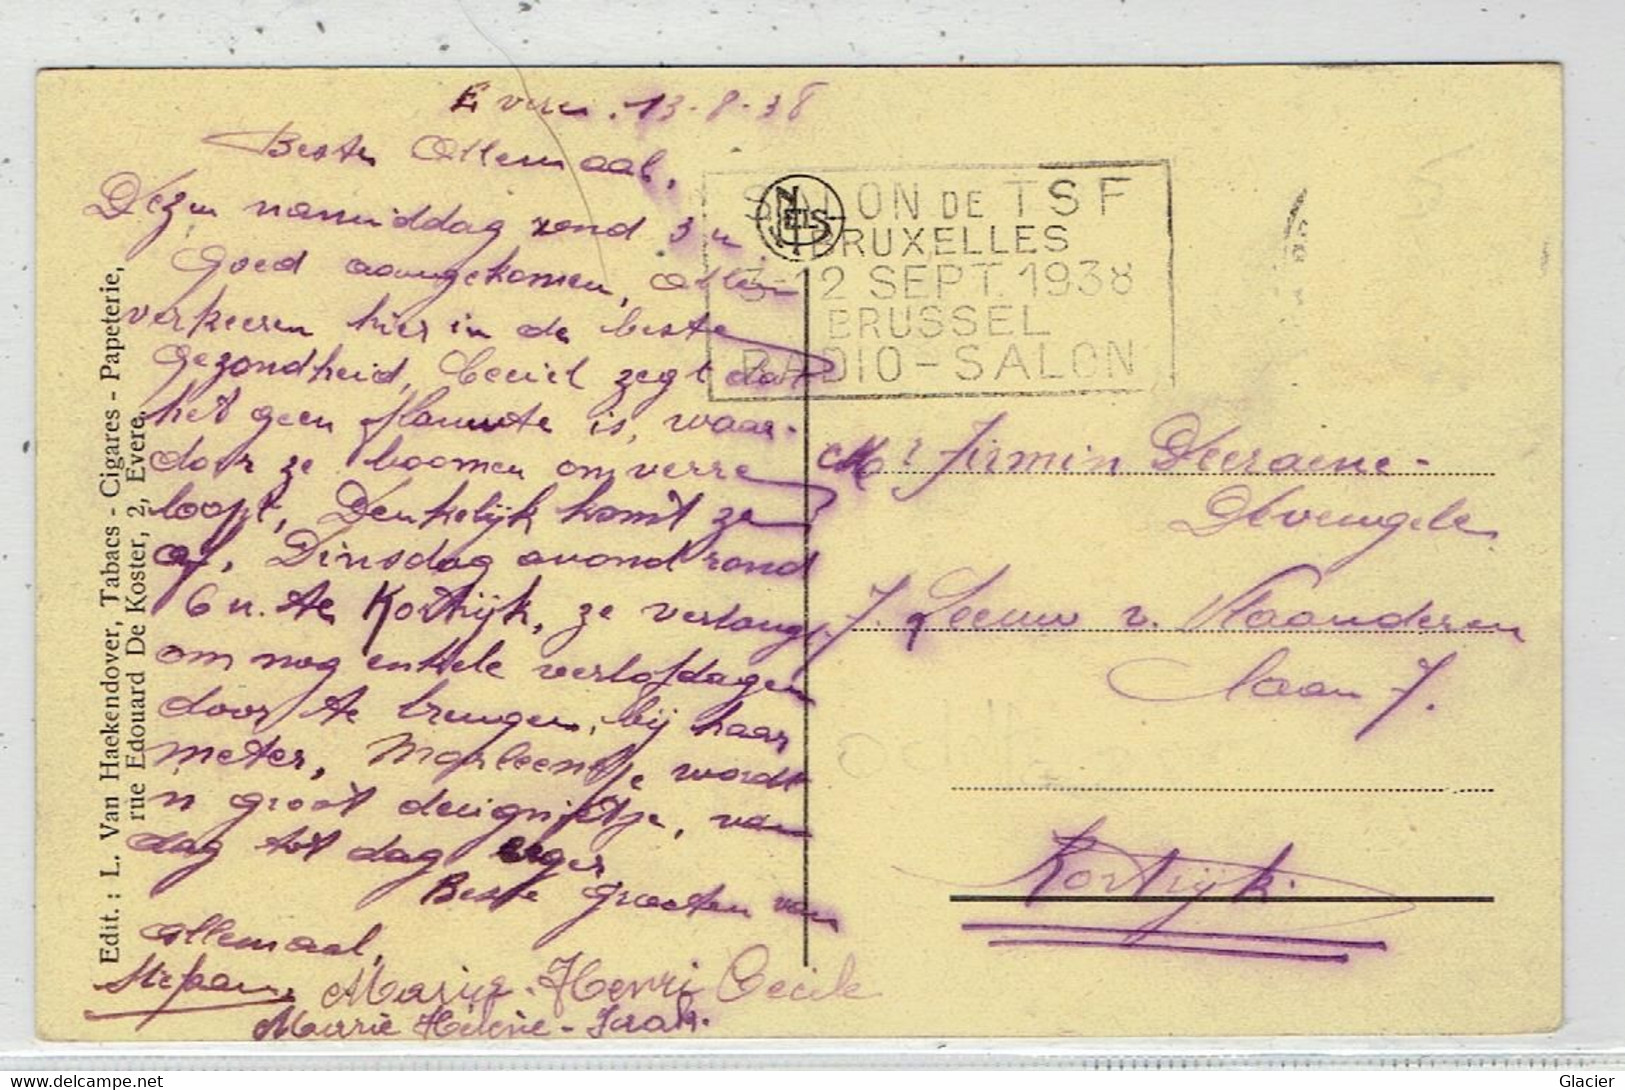 Evere. 13-8-38
Beste Allemaal,
Dezen namiddag rond 3 u
Goed aangekomen, Allen
verkeeren hier in de beste
gezondheid, Cecile zegt dat
het geen flauwte is, waar-
door ze boomen omverre
loopt, Denkelijk komt ze
af, Dinsdag avond rond
6 u. te Kortrijk, ze verlangt
om nog enkele verlofdagen
door te brengen, bij haar
meter, Marleentje wordt
'n groot deugnietje, van
dag tot dag erger
Beste groeten van
Allemaal,
Stefaan, Maria - Henri Cecile
Marie Hélène -
Edit. : L. Van Haekendover, Tabacs - Cigares - Papeterie,
rue Edouard De Koster, 2, Evere.
NELS
SALON DE TSF
BRUXELLES
3-12 SEPT. 1938
BRUSSEL
RADIO-SALON
Mr Firmin Deeraene-
7. Leeuw v. Vlaanderen
laan 7.
Kortrijk.
Glacier